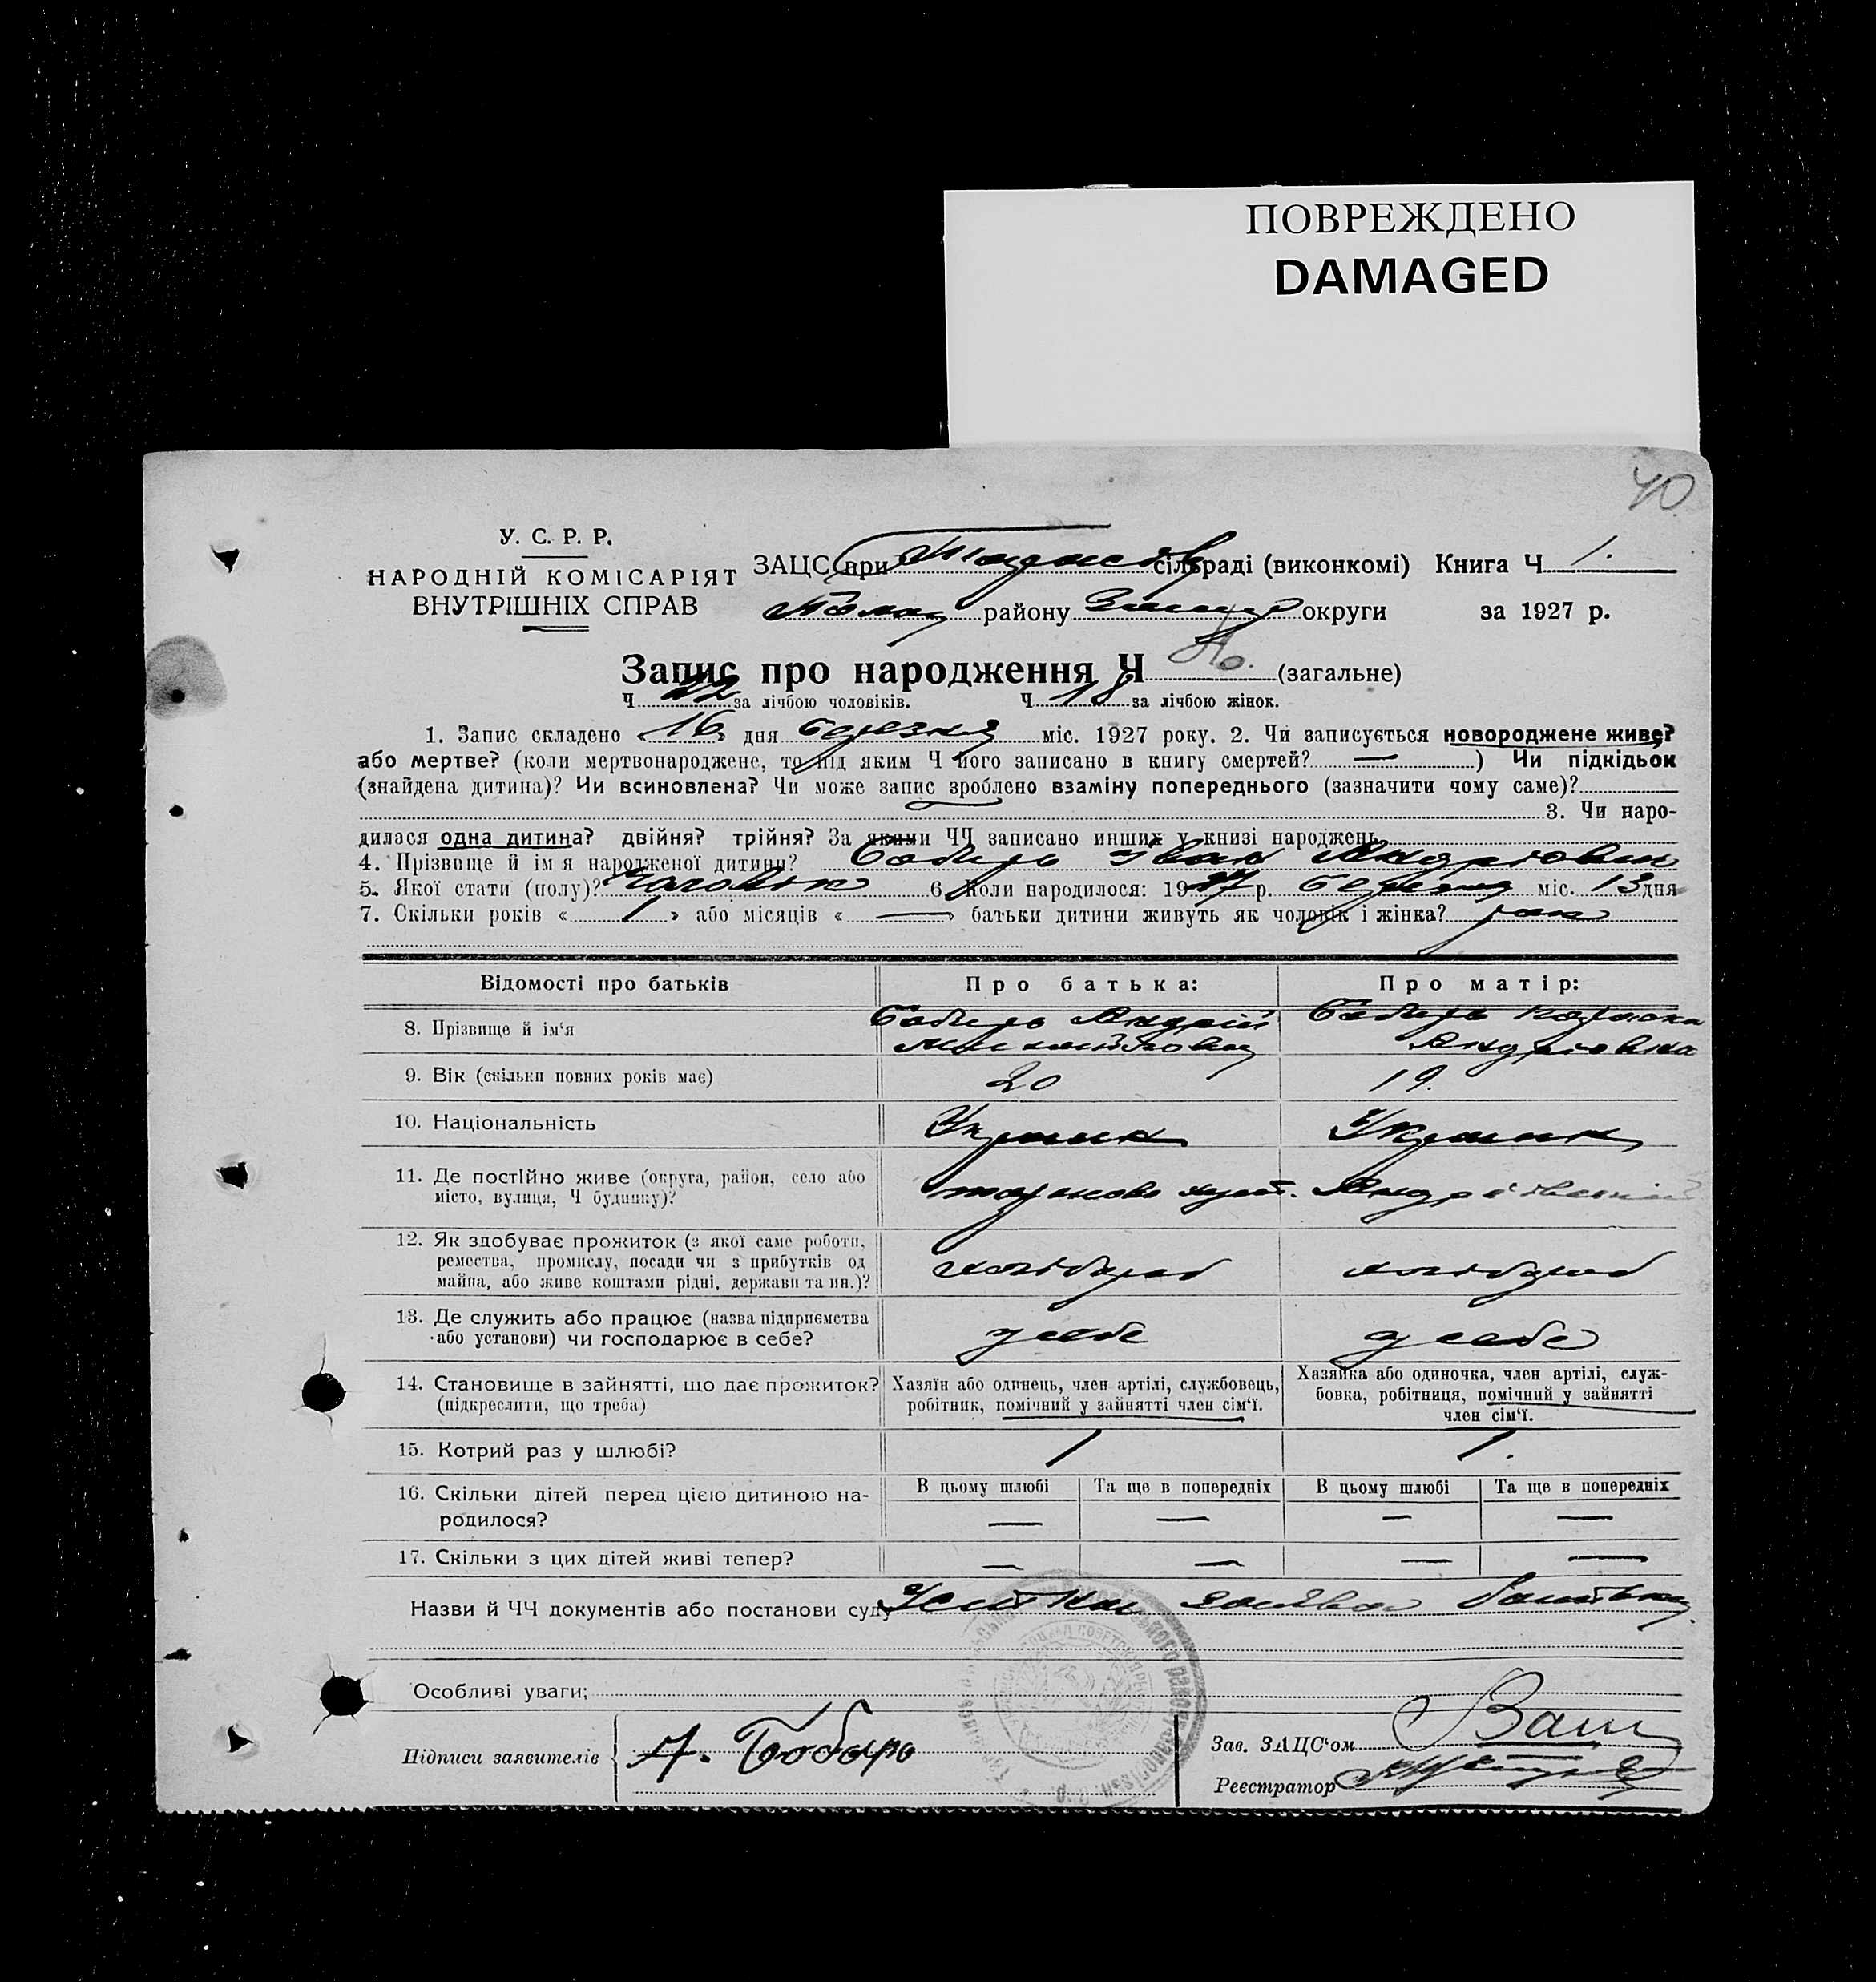 ПОВРЕЖДЕНО
DAMAGED
40
У. С. Р. Р.
НАРОДНІЙ КОМІСАРІЯТ
ВНУТРІШНІХ СПРАВ
ЗАЦС при сільраді (виконкомі) Книга Ч 1.
району округи за 1927 р.
Запис про народження Ч 40. (загальне)
Ч 22 за лічбою чоловіків. Ч 18 за лічбою жінок.
1. Запис складено « 16 » дня березня міс. 1927 року. 2. Чи записується новороджене живе?
або мертве? (коли мертвонароджене, то під яким Ч його записано в книгу смертей? — ) Чи підкідьок
(знайдена дитина)? Чи всиновлена? Чи може запис зроблено взаміну попереднього (зазначити чому саме)?
3. Чи наро-
дилася одна дитина? двійня? трійня? За якими ЧЧ записано инших у книзі народжень
4. Прізвище й ім я народженої дитини? Бобирь Іван Андріович
5. Якої стати (полу)? чоловік 6. Коли народилося: 1927 р. березня міс. 13 дня
7. Скільки років « 1 » або місяців « — » батьки дитини живуть як чоловік і жінка? рік
Відомості про батьків
Про батька:
Про матір:
8. Прізвище й ім‘я
Бобирь Андрій
Бобирь
Андріовна
9. Вік (скільки повних років має)
20
19.
10. Національність
Украинк
Украинк
11. Де постійно живе (округа, район, село або
місто, вулиця, Ч будинку)?
хут.
12. Як здобуває прожиток (з якої саме роботи,
ремества, промислу, посади чи з прибутків од
майна, або живе коштами рідні, держави та ин.)?
хлібороб
хлібороб
13. Де служить або працює (назва підприємства
або установи) чи господарює в себе?
у себе
у себе
14. Становище в зайнятті, що дає прожиток?
(підкреслити, що треба)
Хазяїн або одинець, член артілі, службовець,
робітник, помічний у зайнятті член сім‘ї.
Хазяйка або одиночка, член артілі, служ-
бовка, робітниця, помічний у зайнятті
член сім‘ї.
15. Котрий раз у шлюбі?
1
1.
16. Скільки дітей перед цією дитиною на-
родилося?
В цьому шлюбі
Та ще в попередніх
В цьому шлюбі
Та ще в попередніх
—
—
—
—
17. Скільки з цих дітей живі тепер?
—
—
—
—
Назви й ЧЧ документів або постанови суду Устна заява батька.
Особливі уваги;
Підписи заявителів
А. Бобырь
Зав. ЗАЦС‘ом
Реєстратор